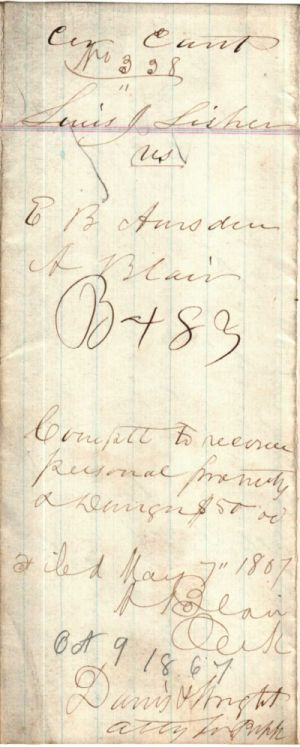 Cir Court
No 338
Louis J Lisher
vs
E B Amsden
A Blair
B + 83
Complt to recover
personal property
& Damgn $50 00
Filed May 7" 1867
A Blair
Clerk
Oct 9 1867
Davis & Wright
attys for Pltff